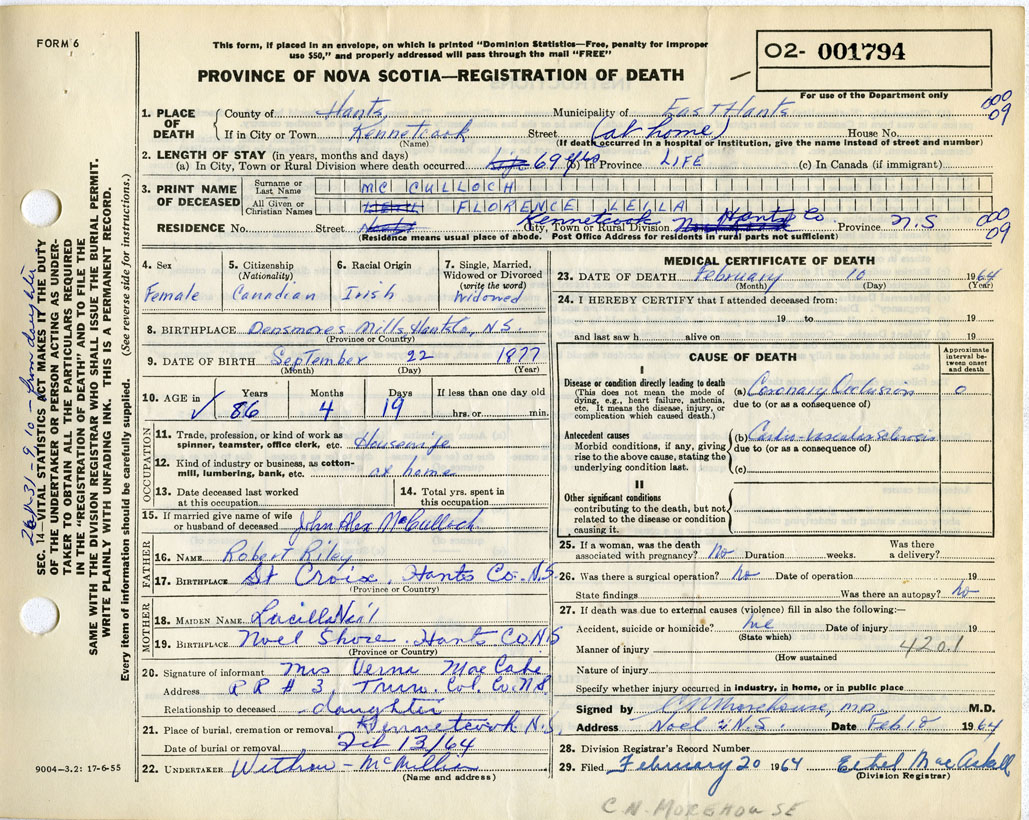 FORM 6
This form, if placed in an envelope, on which is printed "Dominion Statistics—Free, penalty for improper
use $50," and properly addressed will pass through the mail "FREE"
PROVINCE OF NOVA SCOTIA—REGISTRATION OF DEATH
02- 001794
For use of the Department only
000
09
1. PLACE OF DEATH { County of Hants, Municipality of East Hants
If in City or Town Kennetcook Street (at home) House No.
(Name) (If death occurred in a hospital or institution, give the name instead of street and number)
2. LENGTH OF STAY (in years, months and days)
(a) In City, Town or Rural Division where death occurred 69 yrs (b) In Province LIFE (c) In Canada (if immigrant)
3. PRINT NAME OF DECEASED
Surname or Last Name MC CULLOCH
All Given or Christian Names FLORENCE LEILLA
RESIDENCE No. Street Kennetcook Hants Co City, Town or Rural Division Province N.S
(Residence means usual place of abode. Post Office Address for residents in rural parts not sufficient)
000
09
4. Sex
Female
5. Citizenship
(Nationality)
Canadian
6. Racial Origin
Irish
7. Single, Married, Widowed or Divorced
(write the word)
Widowed
8. BIRTHPLACE Densmores Mills, Hants Co, N.S.
(Province or Country)
9. DATE OF BIRTH September 22 1877
(Month) (Day) (Year)
10. AGE in ✓ Years Months Days If less than one day old
86 4 19 hrs. or min.
OCCUPATION
11. Trade, profession, or kind of work as
spinner, teamster, office clerk, etc. Housewife
12. Kind of industry or business, as cotton-
mill, lumbering, bank, etc. at home
13. Date deceased last worked
at this occupation
14. Total yrs. spent in
this occupation
15. If married give name of wife
or husband of deceased John Alex McCulloch
FATHER
16. NAME Robert Riley
17. BIRTHPLACE St Croix, Hants Co. N.S.
(Province or Country)
MOTHER
18. MAIDEN NAME Lucilla Neil
19. BIRTHPLACE Noel Shore, Hants Co N.S
(Province or Country)
20. Signature of informant Mrs Verna MacCabe
Address R R # 3, Truro, Col. Co. N.S.
Relationship to deceased daughter
21. Place of burial, cremation or removal Kennetcook N.S.
Date of burial or removal Feb 13/64
22. UNDERTAKER Withrow - McMillin
(Name and address)
9004—3.2: 17-6-55
MEDICAL CERTIFICATE OF DEATH
23. DATE OF DEATH February 10 1964
(Month) (Day) (Year)
24. I HEREBY CERTIFY that I attended deceased from:
19 to 19
and last saw h alive on 19
CAUSE OF DEATH
Approximate interval between onset and death
I
Disease or condition directly leading to death
(This does not mean the mode of dying, e.g., heart failure, asthenia, etc. It means the disease, injury, or complication which caused death.)
(a) Coronary Occlusion 0
due to (or as a consequence of)
Antecedent causes
Morbid conditions, if any, giving rise to the above cause, stating the underlying condition last.
(b) Cardio-vascular sclerosis
due to (or as a consequence of)
(c)
II
Other significant conditions
contributing to the death, but not related to the disease or condition causing it.
25. If a woman, was the death
associated with pregnancy? No Duration weeks. Was there a delivery?
26. Was there a surgical operation? No Date of operation 19
State findings Was there an autopsy? No
27. If death was due to external causes (violence) fill in also the following:—
Accident, suicide or homicide? Date of injury 19
(State which)
Manner of injury 420.1
(How sustained
Nature of injury
Specify whether injury occurred in industry, in home, or in public place
Signed by C N Morehouse, M.D. M.D.
Address Noel N.S. Date Feb 18 1964
28. Division Registrar's Record Number
29. Filed February 20 1964 Ethel MacAskill
(Division Registrar)
C N- MOREHOUSE
26-31-9-10 - from daughter
SEC. 14—VITAL STATISTICS ACT MAKES IT THE DUTY
OF THE UNDERTAKER OR PERSON ACTING AS UNDER-
TAKER TO OBTAIN ALL THE PARTICULARS REQUIRED
IN THE "REGISTRATION OF DEATH" AND TO FILE THE
SAME WITH THE DIVISION REGISTRAR WHO SHALL ISSUE THE BURIAL PERMIT.
WRITE PLAINLY WITH UNFADING INK. THIS IS A PERMANENT RECORD.
Every item of information should be carefully supplied. (See reverse side for instructions.)